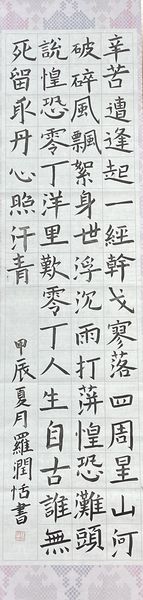 辛苦遭逢起一經幹戈寥落四周星山河
破碎風飄絮身世浮沉雨打萍惶恐灘頭
說惶恐零丁洋里歎零丁人生自古誰無
死留取丹心照汗青
甲辰夏月羅潤恬書